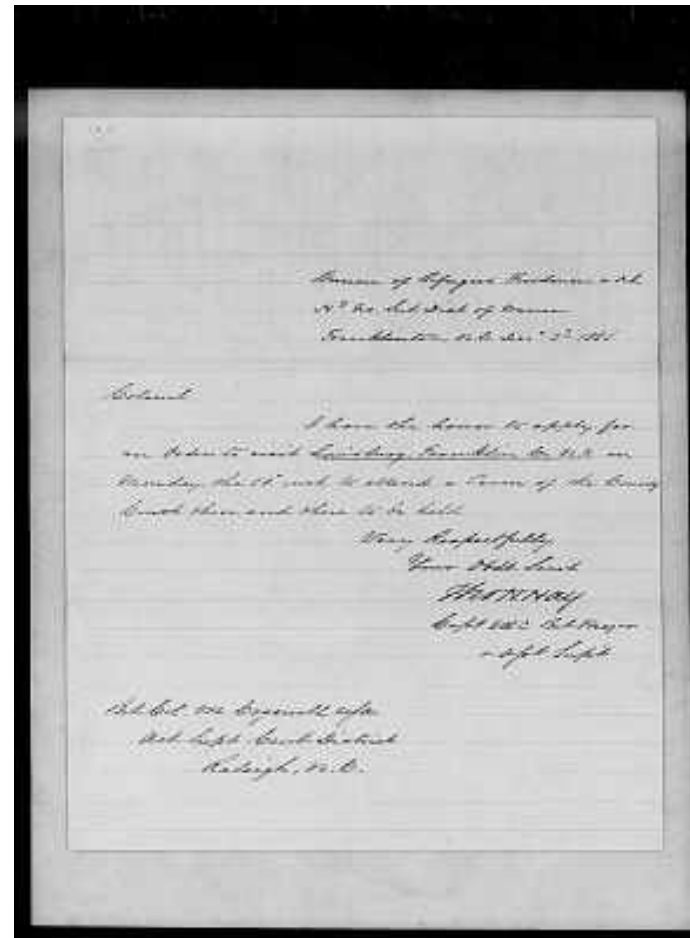 Bureau of Refugees Freedmen &c
Hd Qrs Sub Dist of
Franklinton, N.C. Decr 3d 186
Colonel
I have the honor to apply for
an Order to visit Louisburg Franklin Co N.C. on
Monday the inst to attend a Term of the County
Court then and there to be held
Very Respectfully
Your Obdt Servt
Thos H Hay
Capt VRC Bvt Major
& Asst Supt
Bvt Col
Act Supt Cent District
Raleigh, N.C.